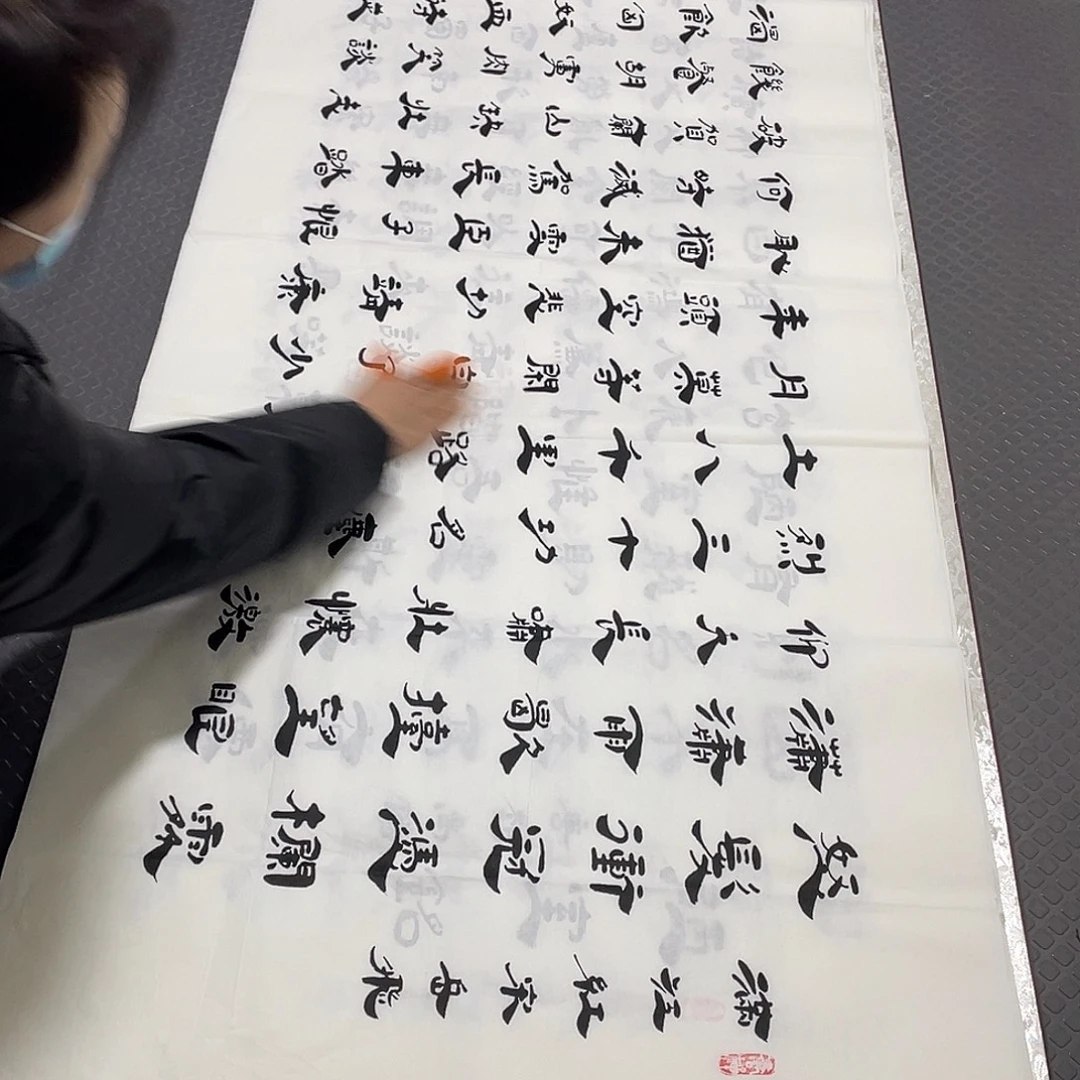 滿江紅宋岳飛
怒髮衝冠憑欄處
瀟瀟雨歇擡望眼
仰天長嘯壯懷激
烈三十功名塵
土八千里路
月莫等閑白了少
年頭空悲切靖康
恥猶未雪臣子恨
何時滅駕長車踏
破賀蘭山缺壯志
饑餐胡虜肉笑談
渴飲匈奴血待從